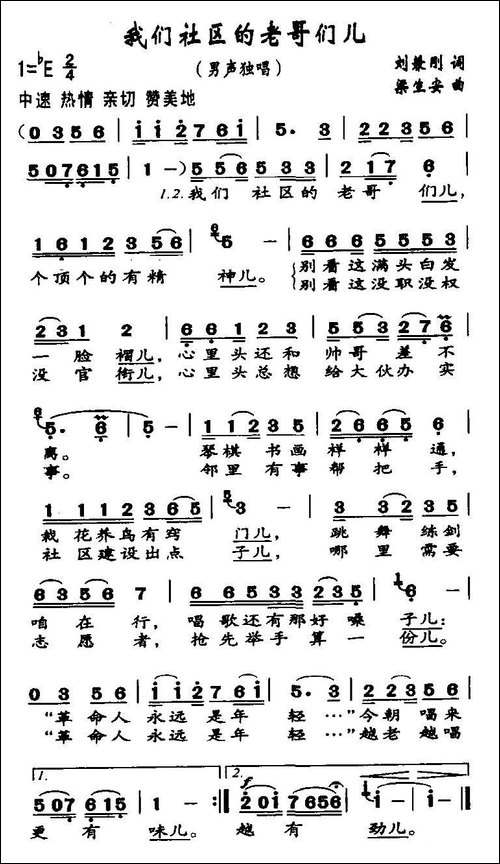 我们社区的老哥们儿
1=♭E 2/4
(男声独唱)
刘兼刚 词
梁生安 曲
中速 热情 亲切 赞美地
(0 3 5 6 | i i 2 7 6 i | 5· 3 | 2 2 3 5 6 |
5 0 7 0 6 1 5 | 1 - ) | 5 5 6 5 3 5 | 2 1 7 6 |
1.2.我们 社区的 老哥 们儿,
1 6 1 2 3 5 6 | 5 - | 6 6 6 5 5 5 3 |
个顶个的有精 神儿。 别看这满头白发
别看这没职没权
2 3 1 2 | 6 6 1 2 3 | 5 5 3 2 7 6 |
一脸 褶儿,心里头还和 帅哥差不
没官 衔儿,心里头总想 给大伙办实
5· 6 | 5 - | 1 1 2 3 5 | 2 2 5 6 |
离。 琴棋书画 样样通,
事。 邻里有事 帮把手,
3 3 2 3 6 5 | 3 - | 3 3 2 3 5 |
栽花养鸟有窍 门儿, 跳舞练剑
社区建设出点 子儿, 哪里需要
6 3 5 6 7 | 6 6 3 5 5 3 2 3 5 | 6 - |
咱在行, 唱歌还有那好嗓 子儿:
志愿者, 抢先举手算一 份儿。
0 3 5 6 | i i 2 7 6 i | 5· 3 | 2 2 3 5 6 |
“革命人 永远是年 轻…”今朝唱来
“革命人 永远是年 轻…”越老越唱
1. 2. f
5 0 7 6 1 5 | 1 - :‖ 2 0 i 0 7 6 5 6 | i - | i - ‖
更有 味儿。 越有 劲儿。